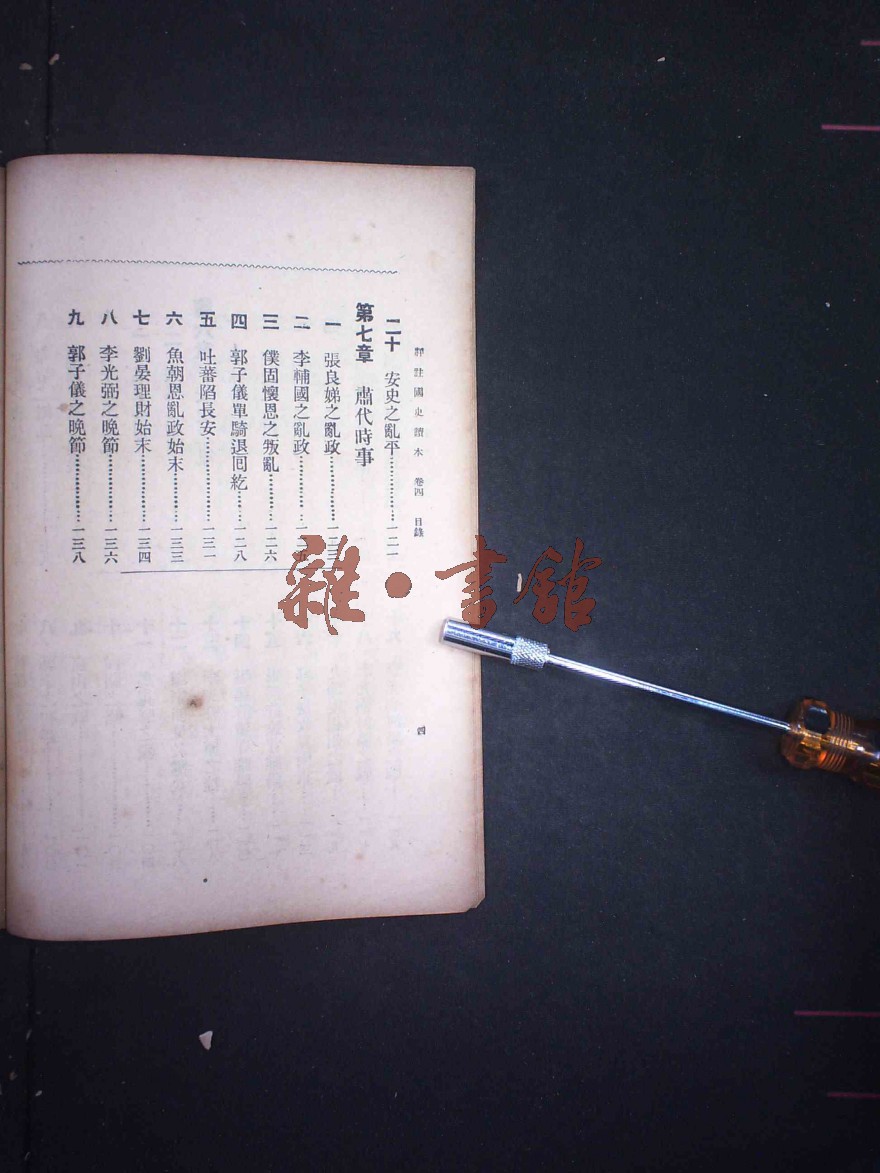 評註國史讀本 卷四 目錄
四
二十 安史之亂平…………一二一
第七章 肅代時事
一 張良娣之亂政…………一二三
二 李輔國之亂政…………一二五
三 僕固懷恩之叛亂………一二六
四 郭子儀單騎退囘紇……一二八
五 吐蕃陷長安……………一三一
六 魚朝恩亂政始末………一三三
七 劉晏理財始末…………一三四
八 李光弼之晚節…………一三六
九 郭子儀之晚節…………一三八
雜·書館